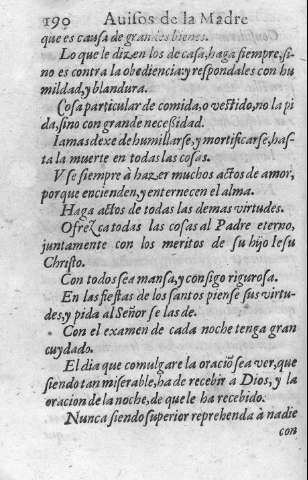 190 Auisos de la Madre
que es causa de grandes bienes.
Lo que le dizen los de casa, haga siempre, si-
no es contra la obediencia: y respondales con hu
mildad, y blandura.
Cosa particular de comida, o vestido, no la pi
da, sino con grande necessidad.
Iamas dexe de humillarse, y mortificarse, has-
ta la muerte en todas las cosas.
Vse siempre à hazer muchos actos de amor,
porque encienden, y enternecen el alma.
Haga actos de todas las demas virtudes.
Ofrezca todas las cosas al Padre eterno,
juntamente con los meritos de su hijo Iesu
Christo.
Con todos sea mansa, y consigo rigurosa.
En las fiestas de los santos piense sus virtu-
des, y pida al Señor se las de.
Con el examen de cada noche tenga gran
cuydado.
El dia que comulgare la oraciõ sea ver, que
siendo tan miserable, ha de recebir a Dios, y la
oracion de la noche, de que le ha recebido.
Nunca siendo superior reprehenda à nadie
con